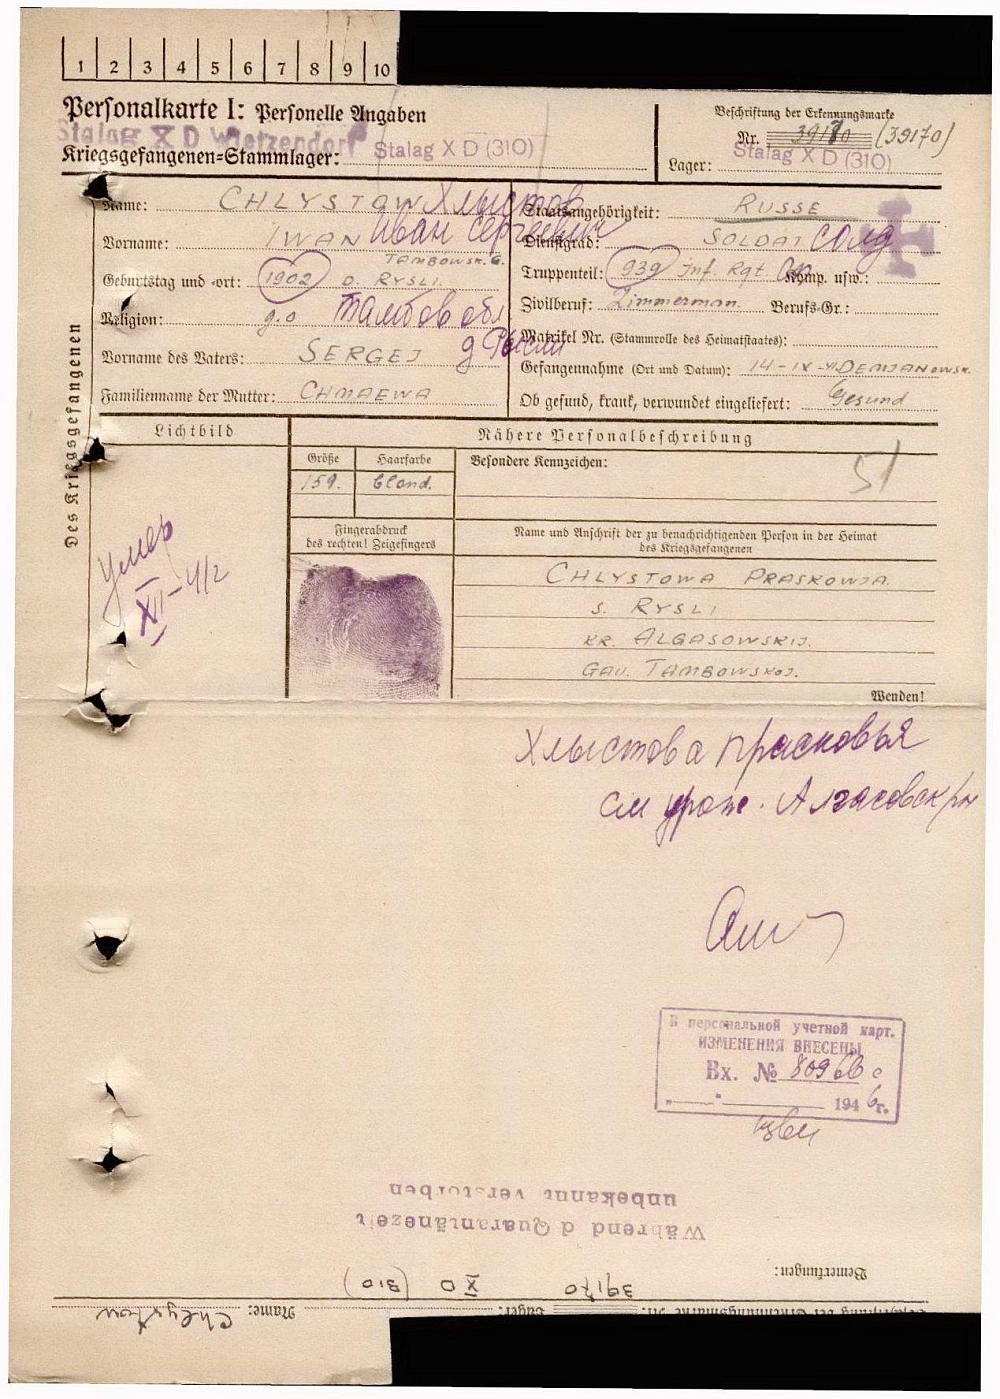 1 2 3 4 5 6 7 8 9 10
Personalkarte I: Personelle Angaben
Stalag X D Wietzendorf
Kriegsgefangenen-Stammlager: Stalag X D (310)
Beschriftung der Erkennungsmarke
Nr. 39170 (39170)
Lager: Stalag X D (310)
Des Kriegsgefangenen
Name: CHLYSTOW Хлыстов
Vorname: IWAN Иван Сергеевич
TAMBOWSK. G.
Geburtstag und -ort: 1902 D. RYSLI.
Religion: g.o Тамбов обл
д Рысли
Vorname des Vaters: SERGEJ
Familienname der Mutter: CHMAEWA
Staatsangehörigkeit: RUSSE
Dienstgrad: SOLDAT солд
Truppenteil: 939 Inf. Rgt Komp. usw.:
Zivilberuf: Zimmerman. Berufs-Gr.:
Matrikel Nr. (Stammrolle des Heimatstaates):
Gefangennahme (Ort und Datum): 14-IX-41 DEMJANOWSK.
Ob gesund, krank, verwundet eingeliefert: Gesund
Lichtbild
Nähere Personalbeschreibung
Größe Haarfarbe Besondere Kennzeichen:
159. blond.
51
Fingerabdruck
des rechten! Zeigefingers
Name und Anschrift der zu benachrichtigenden Person in der Heimat
des Kriegsgefangenen
CHLYSTOWA PRASKOWJA.
S. RYSLI
KR. ALGASOWSKIJ.
GOU. TAMBOWSKOJ.
Wenden!
Умер
XI-41г
Хлыстова Прасковья
см урож. Алгасовск р-н
В персональной учетной карт.
ИЗМЕНЕНИЯ ВНЕСЕНЫ
Вх. № 80966 с
"___" 1946 г.
Während d Quarantänezeit
unbekannt verstorben
Bemerkungen:
39170 X D (310)
Beschriftung der Erkennungsmarke Nr. Lager: Name: Chlystow